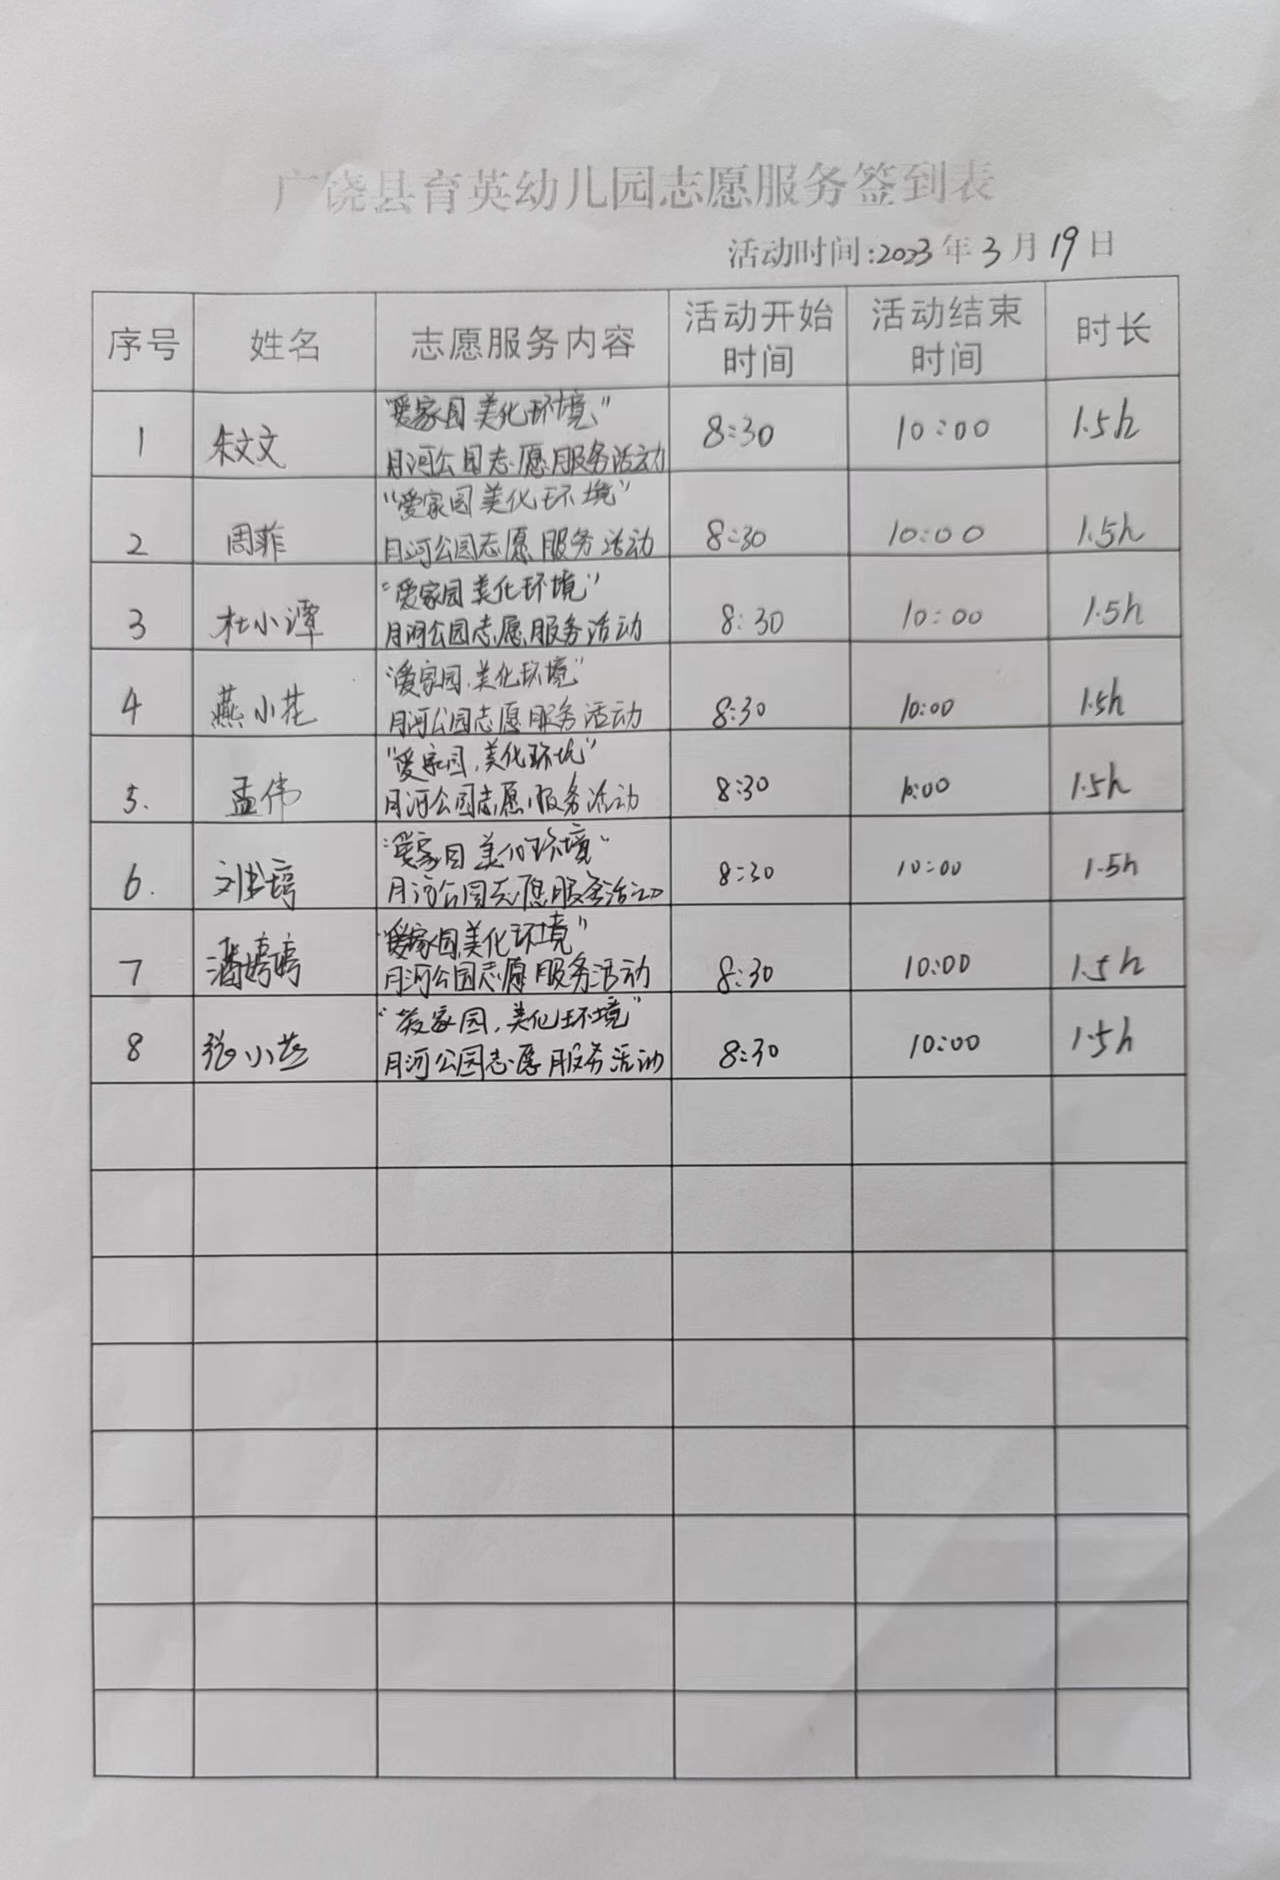 广饶县育英幼儿园志愿服务签到表
活动时间:2023年3月19日
序号 姓名 志愿服务内容 活动开始时间 活动结束时间 时长
1 朱文文 "爱家园 美化环境" 月河公园志愿服务活动 8:30 10:00 1.5h
2 周菲 "爱家园 美化环境" 月河公园志愿服务活动 8:30 10:00 1.5h
3 杜小潭 "爱家园 美化环境" 月河公园志愿服务活动 8:30 10:00 1.5h
4 燕小花 "爱家园,美化环境" 月河公园志愿服务活动 8:30 10:00 1.5h
5. 孟伟 "爱家园,美化环境" 月河公园志愿服务活动 8:30 10:00 1.5h
6. "爱家园 美化环境" 月河公园志愿服务活动 8:30 10:00 1.5h
7 潘婷婷 "爱家园,美化环境" 月河公园志愿服务活动 8:30 10:00 1.5h
8 张小燕 "爱家园,美化环境" 月河公园志愿服务活动 8:30 10:00 1.5h